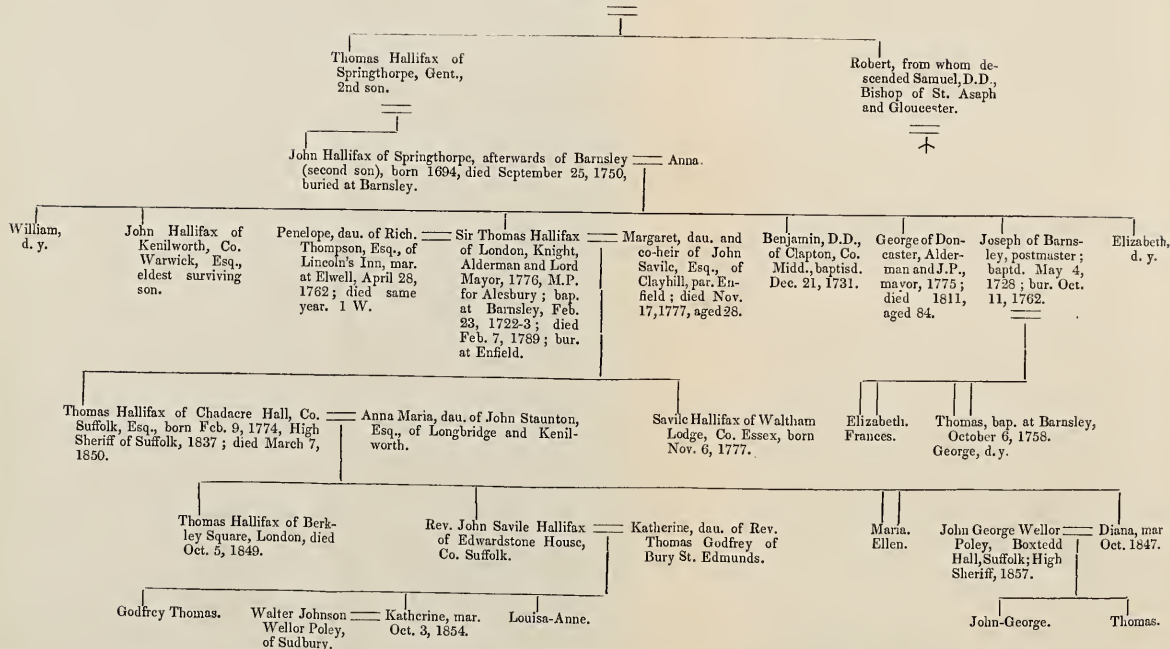 Thomas Hallifax of
Springthorpe, Gent.,
2nd son.
Robert, from whom de-
scended Samuel, D.D.,
Bishop of St. Asaph
and Gloucester.
John Hallifax of Springthorpe, afterwards of Barnsley
(second son), born 1694, died September 25, 1750,
buried at Barnsley.
Anna.
William,
d. y.
John Hallifax of
Kenilworth, Co.
Warwick, Esq.,
eldest surviving
son.
Penelope, dau. of Rich.
Thompson, Esq., of
Lincoln's Inn, mar.
at Elwell, April 28,
1762; died same
year. 1 W.
Sir Thomas Hallifax
of London, Knight,
Alderman and Lord
Mayor, 1776, M.P.
for Alesbury; bap.
at Barnsley, Feb.
23, 1722-3; died
Feb. 7, 1789; bur.
at Enfield.
Margaret, dau. and
co-heir of John
Savile, Esq., of
Clayhill, par. En-
field; died Nov.
17, 1777, aged 28.
Benjamin, D.D.,
of Clapton, Co.
Midd., baptisd.
Dec. 21, 1731.
George of Don-
caster, Alder-
man and J.P.,
mayor, 1775;
died 1811,
aged 84.
Joseph of Barns-
ley, postmaster;
baptd. May 4,
1728; bur. Oct.
11, 1762.
Elizabeth,
d. y.
Thomas Hallifax of Chadacre Hall, Co.
Suffolk, Esq., born Feb. 9, 1774, High
Sheriff of Suffolk, 1837; died March 7,
1850.
Anna Maria, dau. of John Staunton,
Esq., of Longbridge and Kenil-
worth.
Savile Hallifax of Waltham
Lodge, Co. Essex, born
Nov. 6, 1777.
Elizabeth.
Frances.
Thomas, bap. at Barnsley,
October 6, 1758.
George, d. y.
Thomas Hallifax of Berk-
ley Square, London, died
Oct. 5, 1849.
Rev. John Savile Hallifax
of Edwardstone House,
Co. Suffolk.
Katherine, dau. of Rev.
Thomas Godfrey of
Bury St. Edmunds.
Maria.
Ellen.
John George Wellor
Poley, Boxtedd
Hall, Suffolk; High
Sheriff, 1857.
Diana, mar
Oct. 1847.
Godfrey Thomas.
Walter Johnson
Wellor Poley,
of Sudbury.
Katherine, mar.
Oct. 3, 1854.
Louisa-Anne.
John-George.
Thomas.